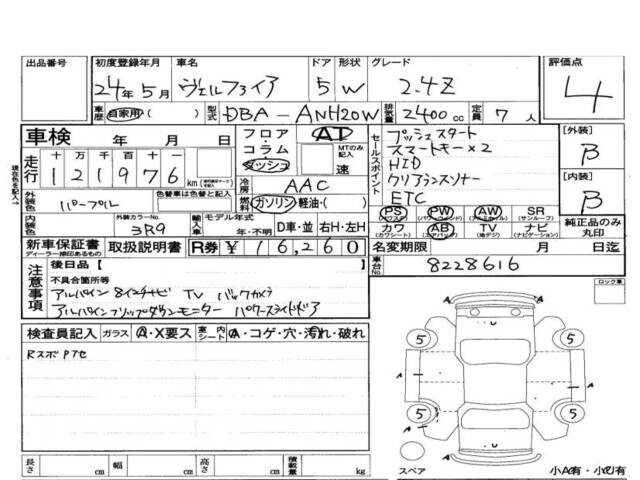 出品番号 初度登録年月 車名 ドア 形状 グレード 評価点
24年5月 ヴェルファイア 5 W 2.4Z 4
車歴 自家用( ) 型式 DBA-ANH20W 排気量 2400cc 定員 7人
車検 年 月 日 フロア コラム ダッシュ AT MTのみ記入 速
セールスポイント
プッシュスタート
スマートキー×2
HID
クリアランスソナー
ETC
[外装] B
[内装] B
現在色を記入→
走行 十 万 千 百 十 一
1 2 1 9 7 6 km
冷房 AAC
外装色 パープル 色替車は色替と記入
燃料 ガソリン・軽油・( )
内装色 外装カラーNo. 3R9 輸入車 モデル年式 年・不明 D車・並 右H・左H
PS (パワステ) PW (パワーウィンド) AW (アルミホイール) SR (サンルーフ)
カワ (カワシート) AB (エアバッグ) TV (地デジ) ナビ (ナビゲーション)
純正品のみ丸印
新車保証書 ディーラー捺印あるもの 取扱説明書 R券 ¥16,260
名変期限 月 日迄
車台No. 8228616
注意事項
後日品【 】
不具合箇所等
アルパイン 8インチナビ TV バックカメラ
アルパインフリップダウンモニター パワースライドドア
ロック車
検査員記入 ガラス A・X要ス 室内シート A・コゲ・穴・汚れ・破れ
RスポPTセ
A
5 5
A A
5 5
A
スペア
小A有・小U有
長さ cm 幅 cm 高さ cm 積載量 kg